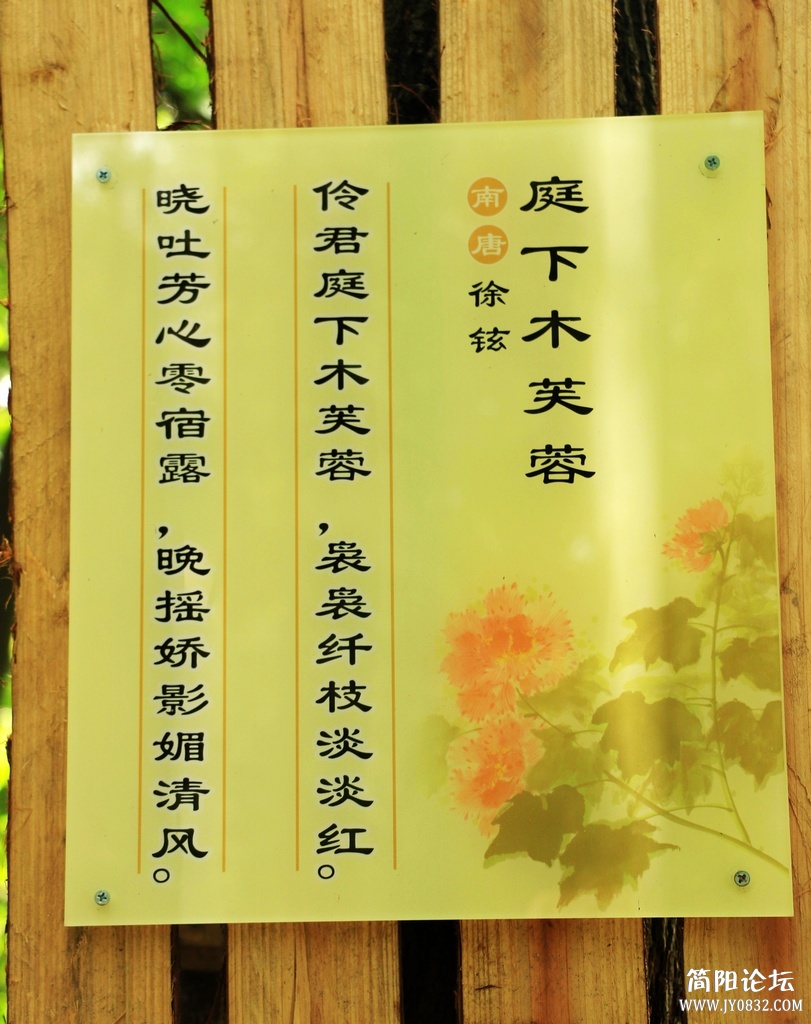 庭下木芙蓉
南唐 徐铉
伶君庭下木芙蓉，袅袅纤枝淡淡红。
晓吐芳心零宿露，晚摇娇影媚清风。
简阳论坛
WWW.JY0832.COM